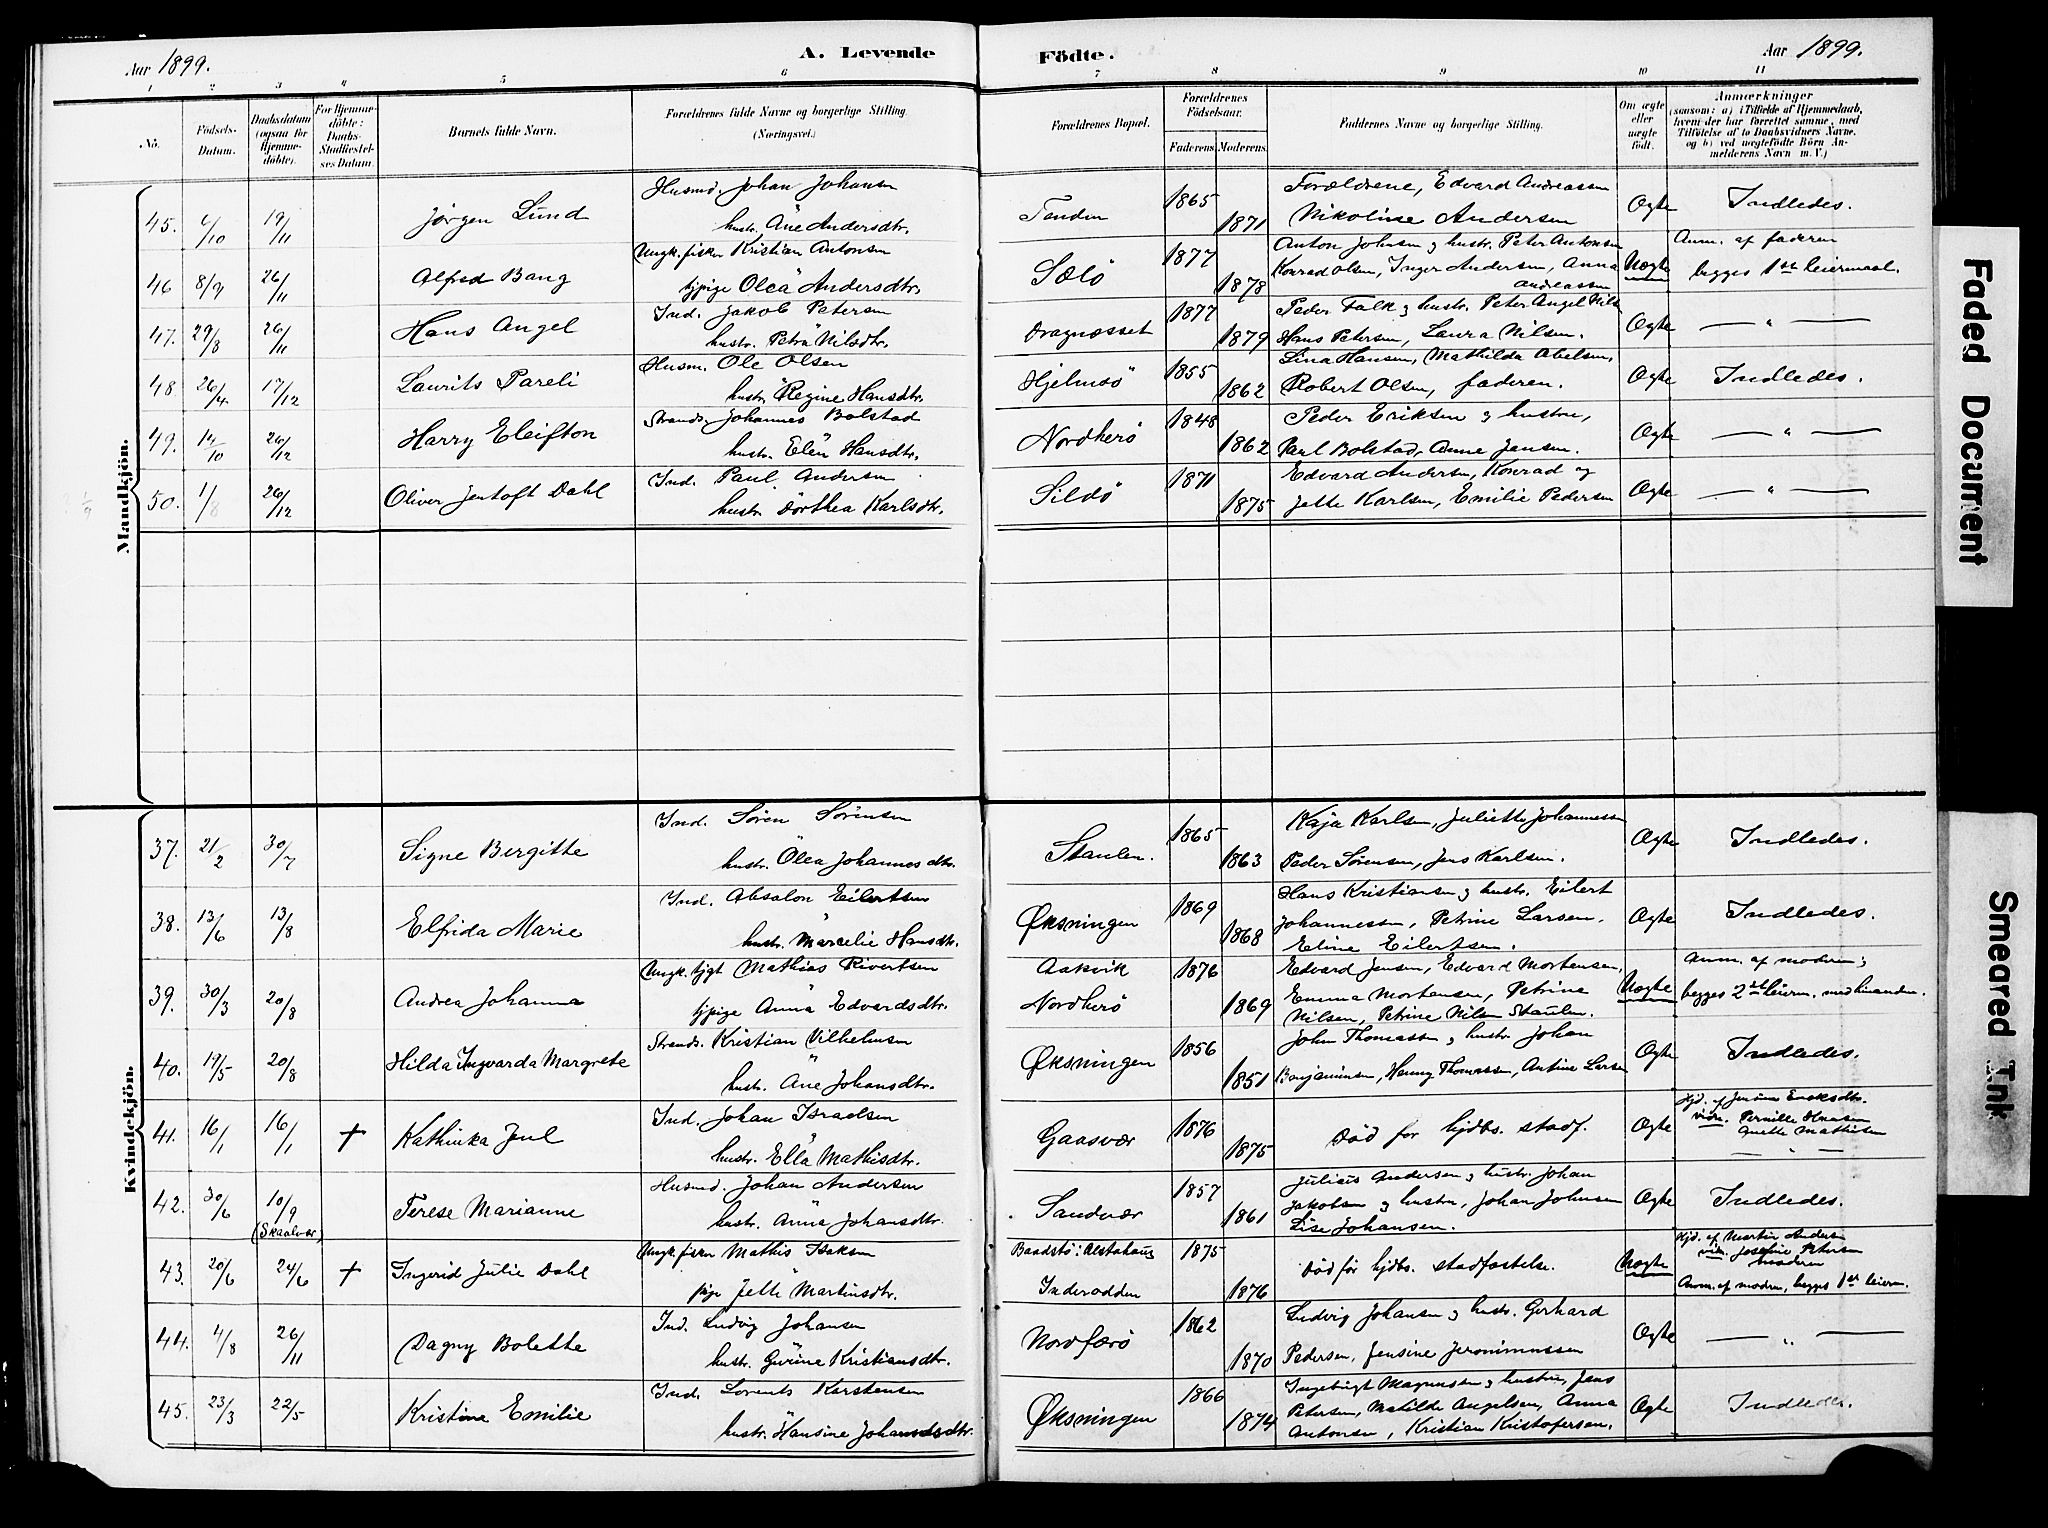 Aar 1899.
A. Levende Födte.
Aar 1899.
1 2 3 4 5 6 7 8 9 10 11
No.
Födsels-Datum.
Daabsdatum (ogsaa for Hjemme-döbte).
For Hjemme-döbte: Daabs-Stadfæstel-ses Datum.
Barnets fulde Navn.
Forældrenes fulde Navne og borgerlige Stilling. (Næringsvei.)
Forældrenes Bopæl.
Forældrenes Födselsaar.
Faderens. Moderens.
Faddernes Navne og borgerlige Stilling.
Om ægte eller uægte födt.
Anmærkninger
(saasom: a) i Tilfælde af Hjemmedaab, hvem der har forrettet samme, med Tilföielse af to Daabsvidners Navne, og b) ved uægtefödte Börn An-melderens Navn m. V.)
Mandkjön.
45. 6/10 19/11 Jørgen Lund Husmd. Johan Johansen
hustr. Ane Andersdtr. Tenden 1865 1871 Forældrene, Edvard Andreassen
Nikoline Andersen Ægte Indledes.
46 8/9 26/11 Alfred Bang Ungk. fisker Kristian Antonsen
tjpige Olea Andersdtr. Sølø 1877 1878 Anton Johnsen & hustr. Peter Antonsen
Konrad Olsen, Inger Andersen, Anna
Andreassen Uægte Anm. af faderen
begges 1ste leiermaal.
47. 29/8 26/11 Hans Angel Ind. Jakob Petersen
hustr. Petra Nilsdtr. Dragnæsset 1877 1879 Peder Falk & hustr. Peter Angel Nils
Hans Petersen, Laura Nilsen. Ægte — " —
48. 26/4 17/12 Laurits Pareli Husm. Ole Olsen
hustr. Regine Hansdtr. Hjelmsö 1855 1862 Lina Hansen, Mathilda Abelsen,
Robert Olsen, faderen. Ægte Indledes.
49. 14/10 26/12 Harry Eleifton Strands. Johannes Bolstad
hustr. Elen Hansdtr. Nordherö 1848 1862 Peder Eriksen & hustru,
Paul Bolstad, Anne Jensen. Ægte — " —
50. 1/8 26/12 Oliver Jentoft Dahl Ind. Paul Andersen
hustr. Dorthea Karlsdtr. Sildö 1871 1875 Edvard Andersen, Konrad og
Jette Karlsen, Emilie Pedersen Ægte — " —
Kvindekjön.
37. 21/2 30/7 Signe Bergitte Ind. Søren Sørensen
hustr. Olea Johannesdtr. Staulen. 1865 1863 Kaja Karlsen, Juliette Johannessen
Peder Sørensen, Jens Karlsen. Ægte Indledes.
38. 13/6 13/8 Elfrida Marie Ind. Absalon Eilertsen
hustr. Marcelie Hansdtr. Øksningen 1869 1868 Hans Kristiansen & hustr. Eilert
Johannessen, Petrine Larsen.
Eline Eilertsen. Ægte Indledes.
39. 30/3 20/8 Andrea Johanna Ungk. tjgt Mathias Rivertsen
tjpige Anna Edvardsdtr. Aakvik
Nordherö 1876 1869 Edvard Jensen, Edvard Mortensen,
Emma Mortensen, Petrine
Nilsen, Petrine Nilsen Staulen. Uægte Anm. af modren;
begges 2det leierm. med hinanden.
40. 19/5 20/8 Hilda Ingvarda Margrete Strands. Kristian Vilhelmsen
hustr. Ane Johansdtr. Øksningen 1856 1851 John Thomassen & hustr. Johan
Benjaminsen, Henny Thomassen, Antine Larsen Ægte Indledes.
41. 16/1 16/1 + Kathinka Juul Ind. Johan Israelsen
hustr. Ella Mathisdtr. Gaasvær 1876 1875 Död for hjdbs. stadf. Ægte Hjd. af Eriksdtr.
vidn. Pernille Hansen
Mathisen
— " —
42. 30/6 10/9 (Skaalvær) Terese Marianne Husmd. Johan Andersen
hustr. Anna Johansdtr. Sandvær 1857 1861 Julius Andersen & hustr. Johan
Jakobsen & hustru, Johan Johnsen
Lise Johansen. Ægte Indledes.
43. 20/6 24/6 + Ingerid Julie Dahl Ungk. fisker Mathis Isaksen
pige Jette Martinsdtr. Baadstö: Alstahaug
Inderodden 1875 1876 Död før hjdbs. stadfæstelse. Uægte Hjd. af Martin Andersen
vidn. Josefine Petersen
modren
Anm. af modren, begges 1ste leierm.
44. 4/8 26/11 Dagny Bolette Ind. Ludvig Johansen
hustr. Gurine Kristiansdtr. Nordfærö 1862 1870 Ludvig Johansen & hustr. Gerhard
Pedersen, Jensine Jeronimussen Ægte — " —
45. 23/3 22/5 Kristina Emilie Ind. Lorents Karstensen
hustr. Hansine Johansdtr. Øksningen 1866 1874 Ingebrigt Magnussen & hustru, Jens
Petersen, Matilde Angelsen, Anna
Antonsen, Kristian Kristofersen. Ægte Indledes.
Faded Document
Smeared Ink